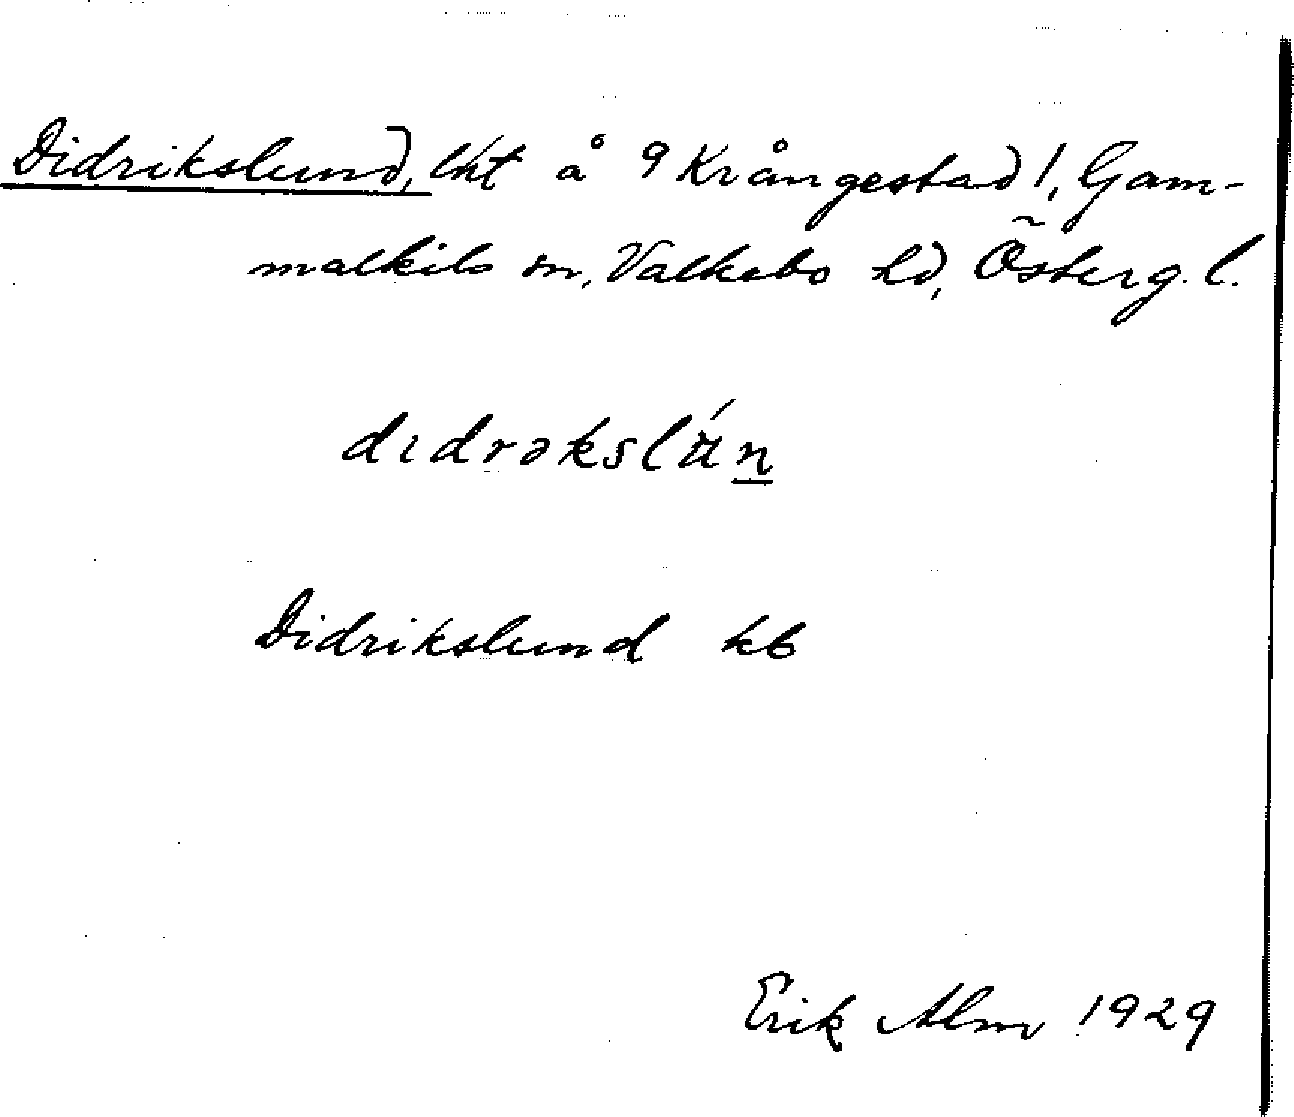 Didrikslund, lht å 9 Krångestad 1, Gam-
malkils sn, Valkebo hd, Österg. l.
dıdrəkslún
Didrikslund kb
Erik Alm 1929